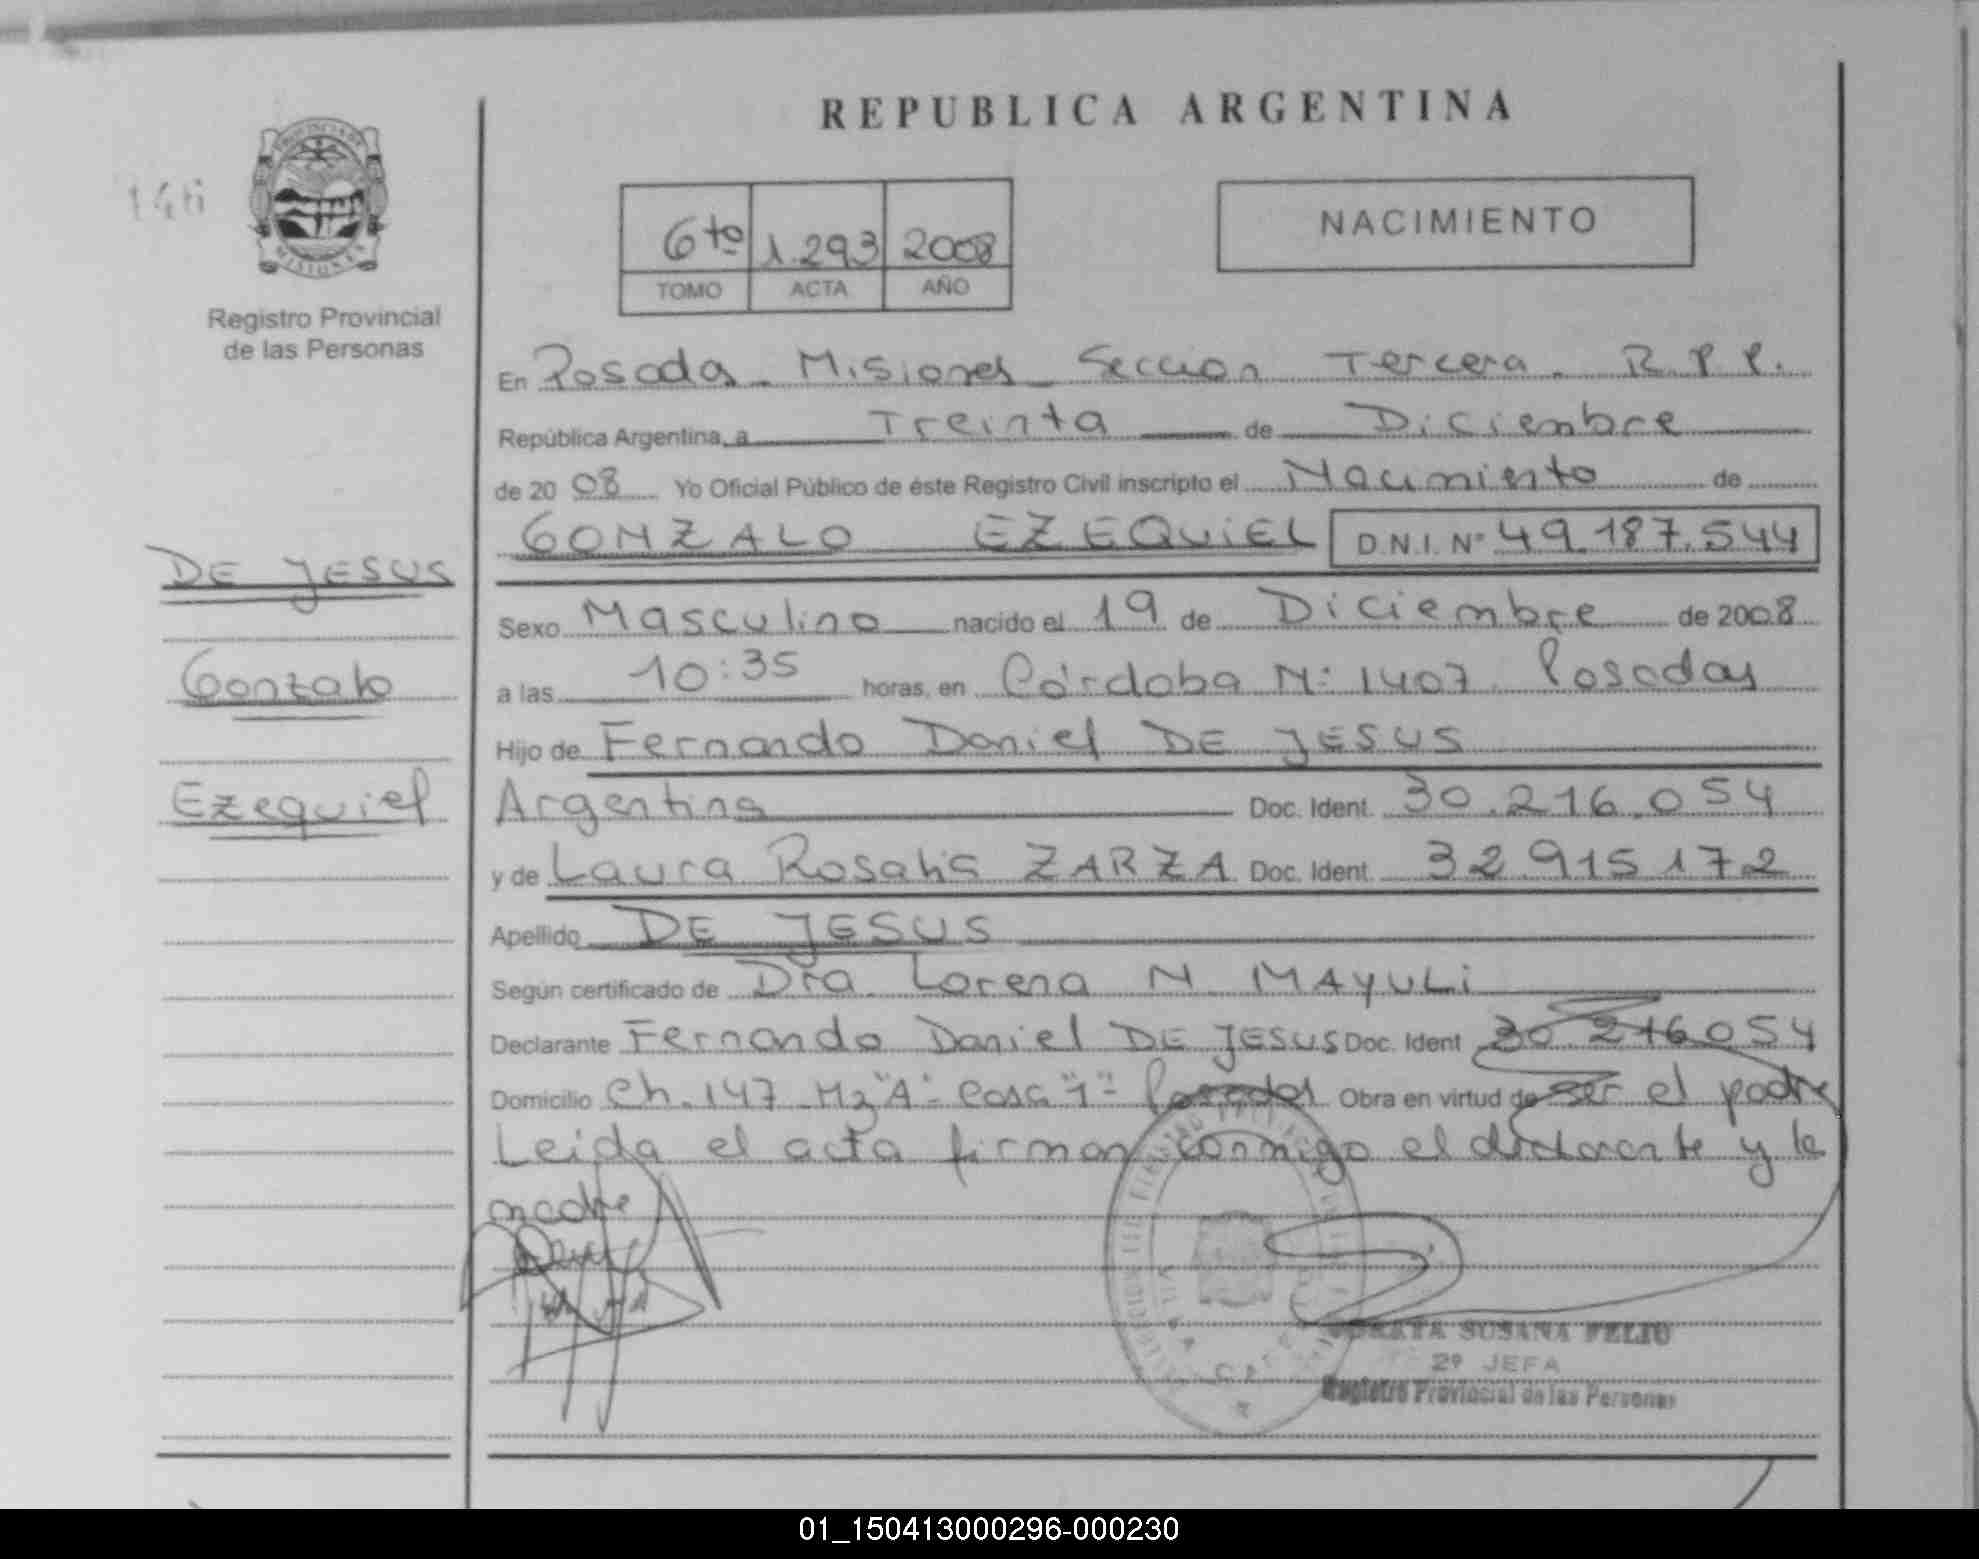 REPUBLICA ARGENTINA
146
PROVINCIA DE MISIONES
Registro Provincial
de las Personas
6to 1.293 2008
TOMO ACTA AÑO
NACIMIENTO
En Posadas - Misiones - Seccion Tercera. R.P.P.
República Argentina, a Treinta de Diciembre
de 2008 Yo Oficial Público de éste Registro Civil inscripto el Nacimiento de
GONZALO EZEQUIEL D.N.I. Nº 49.187.544
DE JESUS
Gonzalo
Ezequiel
Sexo Masculino nacido el 19 de Diciembre de 2008
a las 10:35 horas, en Córdoba Nº 1407 Posadas
Hijo de Fernando Daniel DE JESUS
Argentina Doc. Ident. 30.216.054
y de Laura Rosalia ZARZA Doc. Ident. 32.915.172
Apellido DE JESUS
Según certificado de Dra Lorena N. MAYULi
Declarante Fernando Daniel DE JESUS Doc. Ident 30.216054
Domicilio Ch. 147 Mz "A" Casa "1" - Posadas Obra en virtud de ser el padre
Leida el acta firman conmigo el declarante y la
madre
SUSANA FELIU
2º JEFA
Registro Provincial de las Personas
01_150413000296-000230